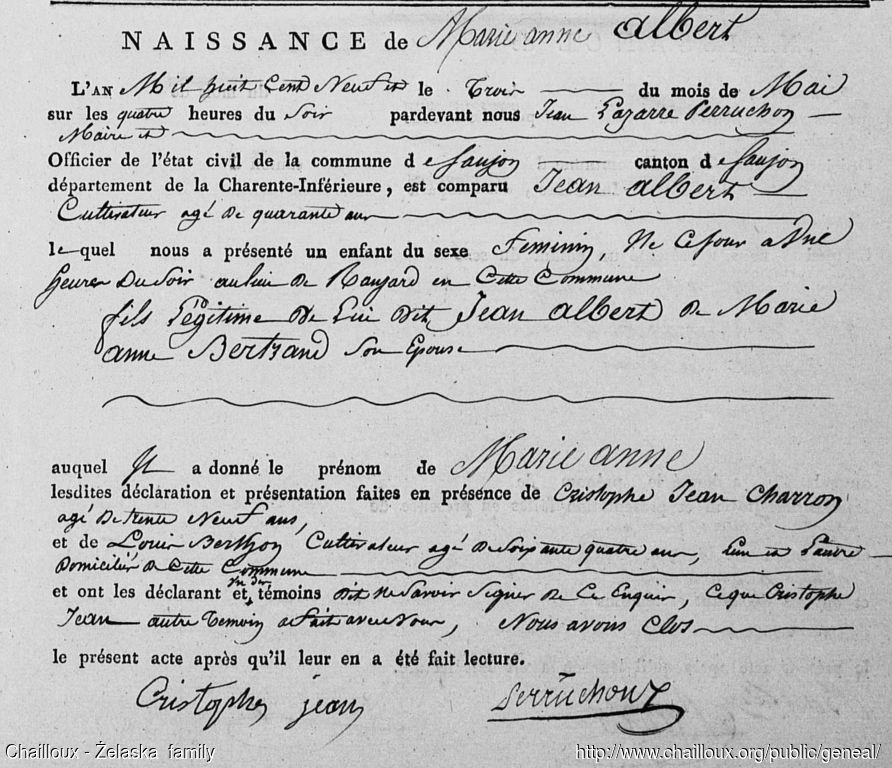 NAISSANCE de Marie anne Albert
L'AN Mil huit Cent Neuf et le Trois du mois de Mai
sur les quatre heures du Soir pardevant nous Jean Lazarre Perruchon
Maire et
Officier de l'état civil de la commune de Saujon canton de Saujon
département de la Charente-Inférieure, est comparu Jean Albert
Cultivateur agé de quarante ans
lequel nous a présenté un enfant du sexe Feminin, Né Ce jour a Une
heures Du Soir au lieu de en Cette Commune
fils Légitime De Lui Dit Jean Albert de Marie
anne Bertrand Son Epouse
auquel Il a donné le prénom de Marie anne
lesdites déclaration et présentation faites en présence de Cristophe Jean Charron
agé De trente Neuf ans,
et de Louis Berthon Cultivateur agé de Soixante quatre ans, L'un et L'autre
Domiciliés de Cette Commune
et ont les déclarant et, témoins Dit Ne Savoir Signer De Ce Enquis, Ce que Cristophe
Jean autre Temoin a fait avec Nous, Nous avons Clos
le présent acte après qu'il leur en a été fait lecture.
Cristophe jean Perruchon
Chailloux - Żelaska family http://www.chailloux.org/public/geneal/